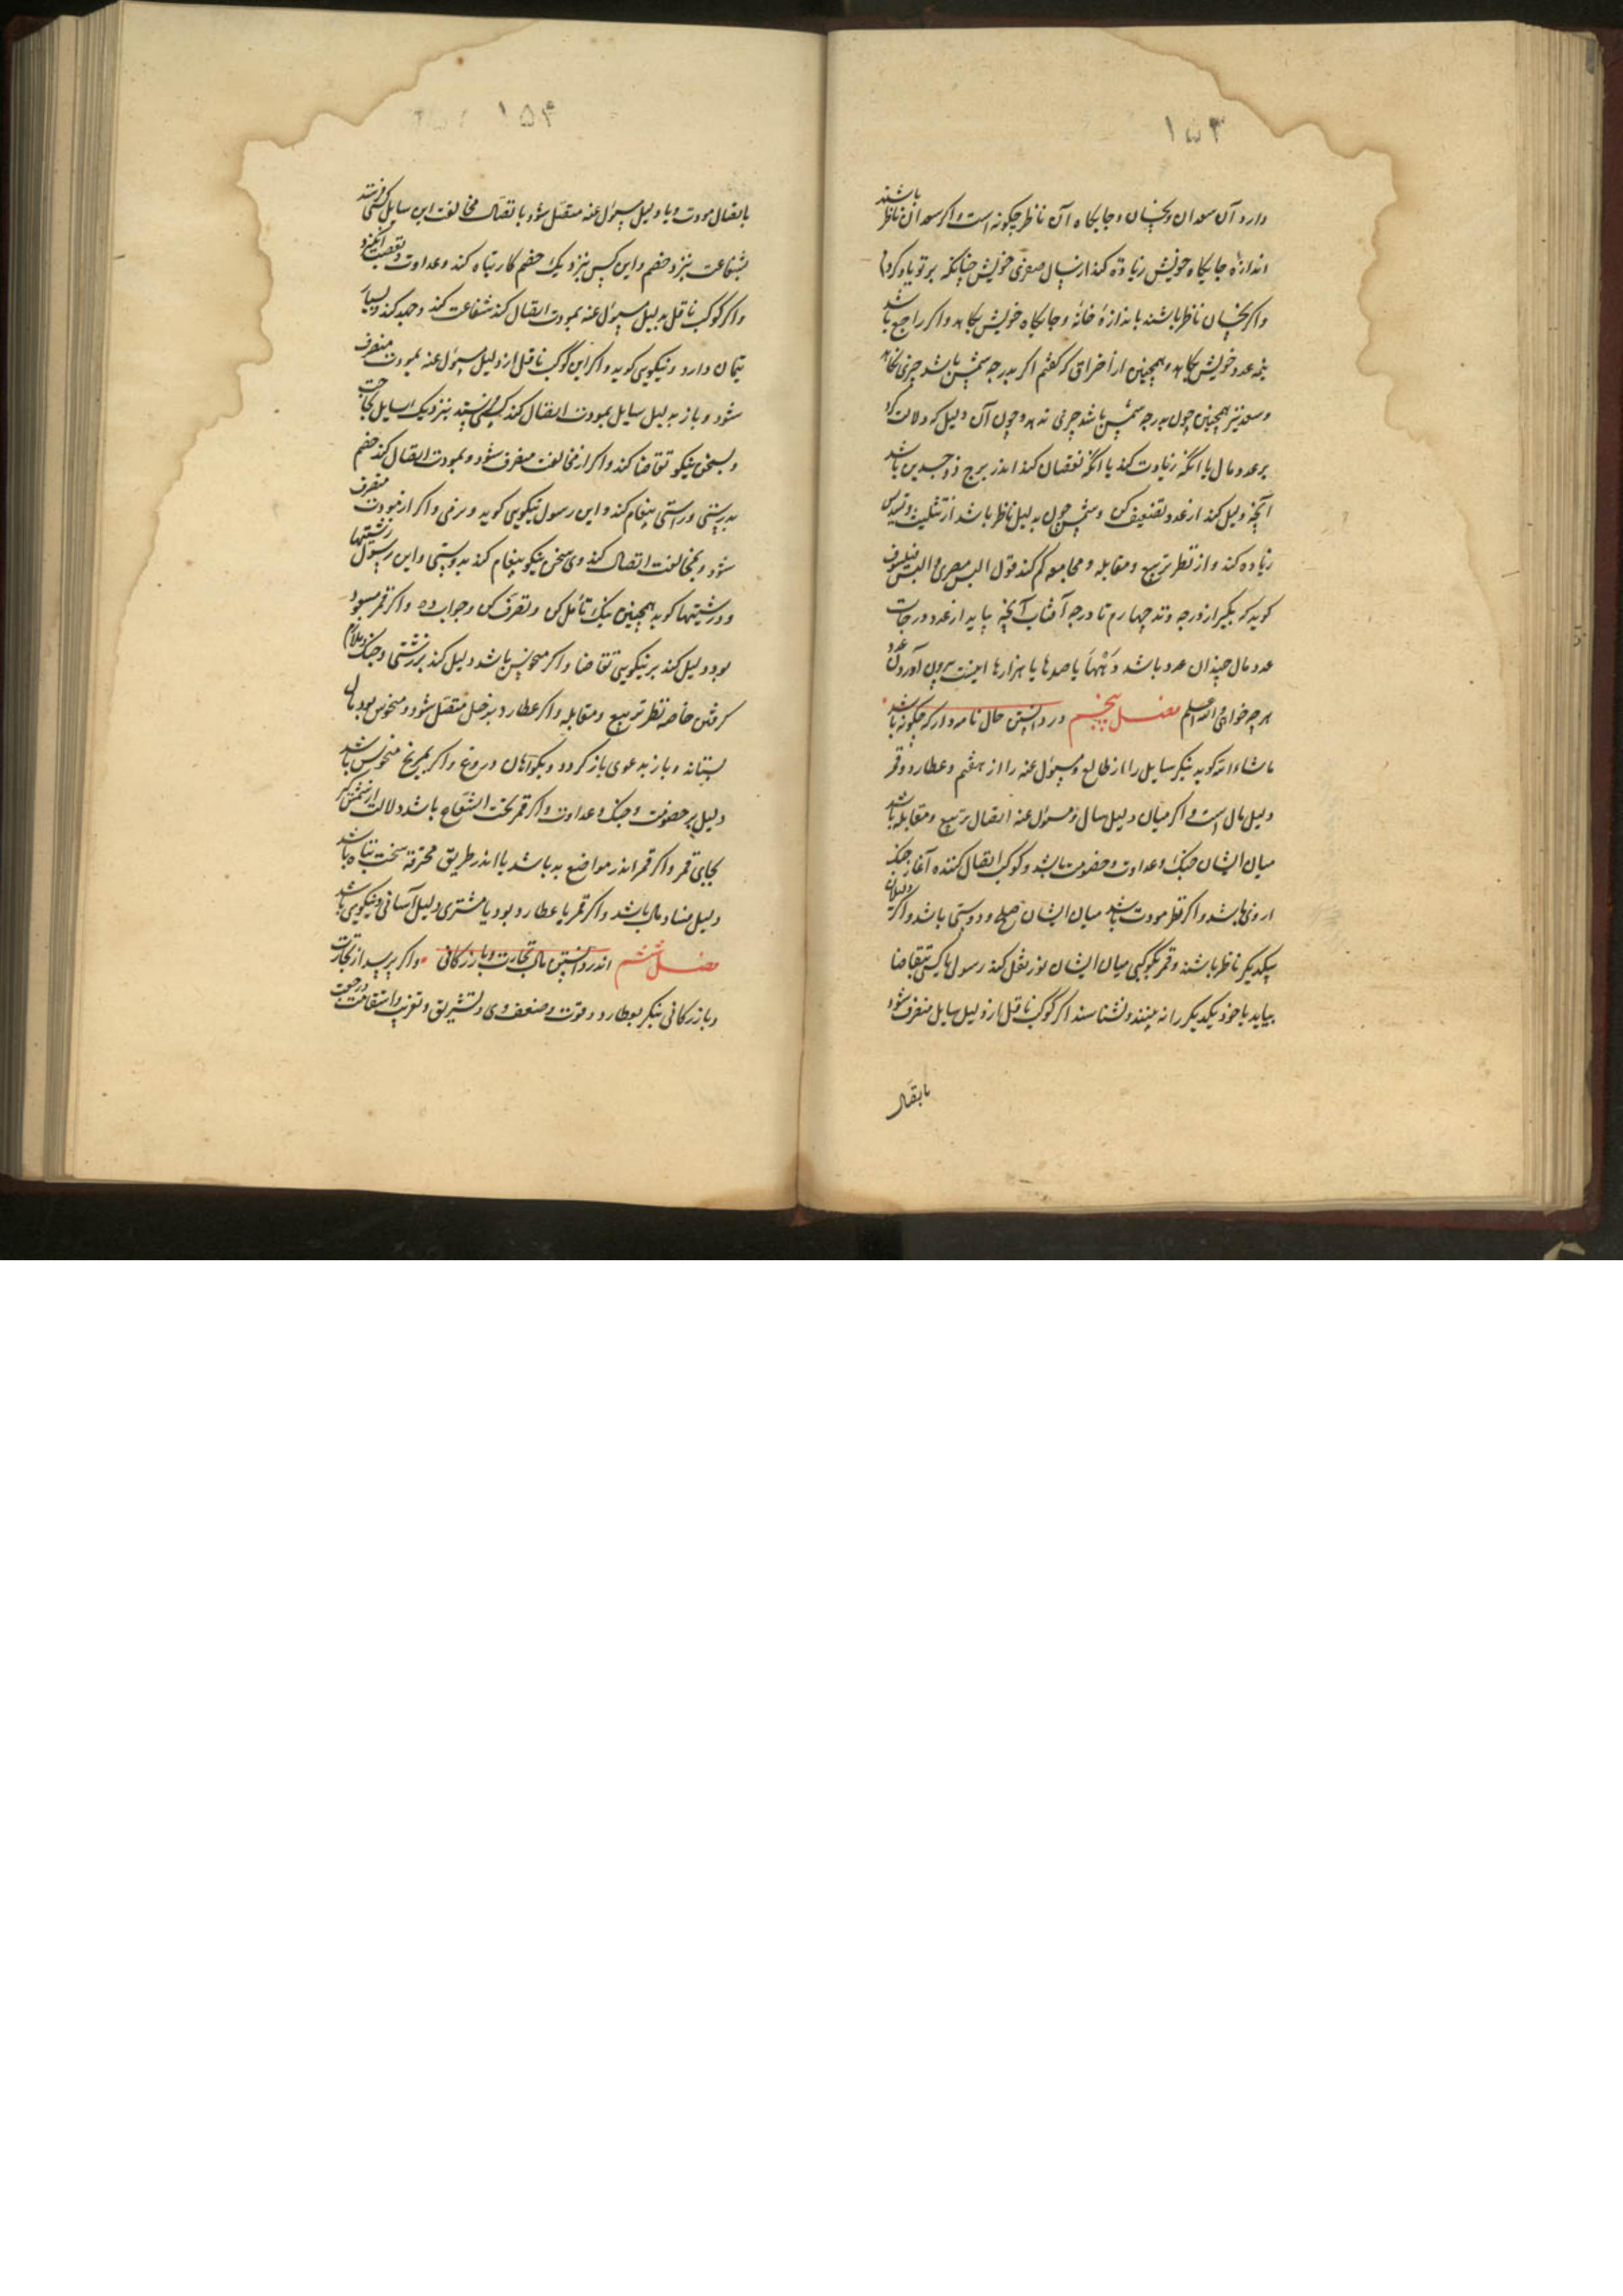 ۱۵۳
دارد آن سعدان و نحسان و جایکاه آن ناظر چکونه است و اکر سعدان ناظر باشند
اندازهٔ جایکاه خویش زیادة کند ارسال صغری خویش چنانکه بر تو یاد کردم
و اکر نحسان ناظر باشند باندازهٔ خانهٔ و جایکاه خویش بکاهد و اکر راجع باشد
نیمه عدد خویش بکاهد و همچنین از احراق که کفتم اکر بدرجه شمس باشد چیزی نکاهد
و سعد نیز همچنین چون بدرجه شمس باشد چیزی ندهد و چون آن دلیل که دلالت کرد
بر عدد مال یا انکه زیادت کند یا انکه نقصان کند اندر برج ذو جسدین باشد
آنچه دلیل کند از عدد تضعیف کن و شمس چون بدلیل ناظر باشد از تثلیث و تسدیس
زیاده کند و از نظر تربیع و مقابله و مجامعه کم کند قول الیس مصری و الیس فیلسوف
کوید که بکیر از درجه وتد چهارم تا درجه آفتاب آنچه بیاید از عدد درجات
عدد مال چندان عدد باشد دَهْها یا صدها یا هزارها اینست بیرون آوردن عدد
هر چه خواهی و الله اعلم فصل پنجم در دانستن حال نامه دار که چکونه باشد
ماشاءالله کوید بنکر سایل را از طالع و مسؤل عنه را از هفتم و عطارد و قمر
دلیل مال است و اکر میان دلیل سال و مسؤل عنه اتصال تربیع و مقابله باشد
میان ایشان جنک و عداوت و خصومت باشد و کوکب اتصال کننده آغاز جنک
از وی باشد و اکر نظر مودت باشد میان ایشان صلح و دوستی باشد و اکر دلیلان
بیکدیکر ناظر باشند و قمر یا کوکبی میان ایشان نور نقل کند رسول یا کسی بتقاضا
بیاید یا خود یکدیکر را نه بینند و نشناسند اکر کوکب ناقل از دلیل سایل منصرف شود
باتصال
۱۵۴
باتصال مودت و با دلیل مسؤل عنه متصل شود باتصال مخالفت این سایل کسی فرستد
بشفاعت نزد خصم و این کس نزدیک خصم کار تباه کند و عداوت و تعصب انکیزد
و اکر کوکب ناقل بدلیل مسؤل عنه بمودت اتصال کند شفاعت کند و جهد کند و بسیار
تیمار دارد و نیکویی کوید و اکر این کوکب ناقل از دلیل مسؤل عنه بمودت منصرف
شود و باز بدلیل سایل بمودت اتصال کند کسی فرستد بنزدیک سایل بحاجت
و بسخن نیکو تقاضا کند و اکر از مخالفت منصرف شود و بمودت اتصال کند خصم
بدرستی و راستی پیغام کند و این رسول نیکویی کوید و نرمی و اکر از مودت منصرف
شود و بمخالفت اتصال کند وی سخن نیکو پیغام کند بدوستی و این رسول زشتیها
و درشتیها کوید همچنین نیک تأمل کن و تصرّف کن و جواب ده و اکر قمر مسعود
بود دلیل کند بر نیکویی تقاضا و اکر منحوس باشد دلیل کند بر زشتی و جنک و بلا
کرفتن خاصه نظر تربیع و مقابله و اکر عطارد بزحل متصل شود و منحوس بود مال
بستاند و باز بدعوی باز کردد و بکواهان دروغ و اکر بمریخ منحوس باشد
دلیل بر خصومت و جنک و عداوت و اکر قمر تحت الشعاع باشد دلالت از شمس کیر
بجای قمر و اکر قمر اندر مواضع بد باشد یا اندر طریق محترقه سخت تباه باشد
دلیل فساد مال باشد و اکر قمر با عطارد بود یا مشتری دلیل آسانی و نیکویی باشد
فصل ششم اندر دانستن مال تجارت و بازرکانی و اکر پرسد از تجارت
و بازرکانی بنکر بعطارد و قوت و ضعف وی و تشریق و تغریب و استقامت و رجعت